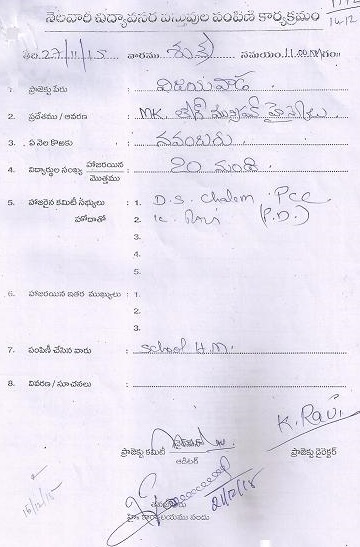 నెలవారీ విద్యావసర వస్తువుల పంపిణీ కార్యక్రమం
తేది: 27/11/15 వారము శుక్ర సమయం: 11.00
1. ప్రాజెక్టు పేరు : విజయవాడ
2. ప్రదేశము / ఆవరణ : MK
3. ఏ నెల కొరకు : నవంబరు
4. విద్యార్థుల సంఖ్య హాజరయిన / మొత్తము : 20 మంది
5. హాజరైన కమిటీ సభ్యులు : 1. D.S. Chalem, PCC
హోదాతో 2. K. Ravi (P.D.)
3.
4.
5.
6. హాజరయిన ఇతర ముఖ్యులు : 1.
2.
3.
7. పంపిణీ చేసిన వారు : School H.M.
8. వివరణ / సూచనలు :
K. Ravi.
ప్రాజెక్టు కమిటీ ప్రాజెక్టు డైరెక్టర్
ఆడిటర్
21/12/15
16/12/15